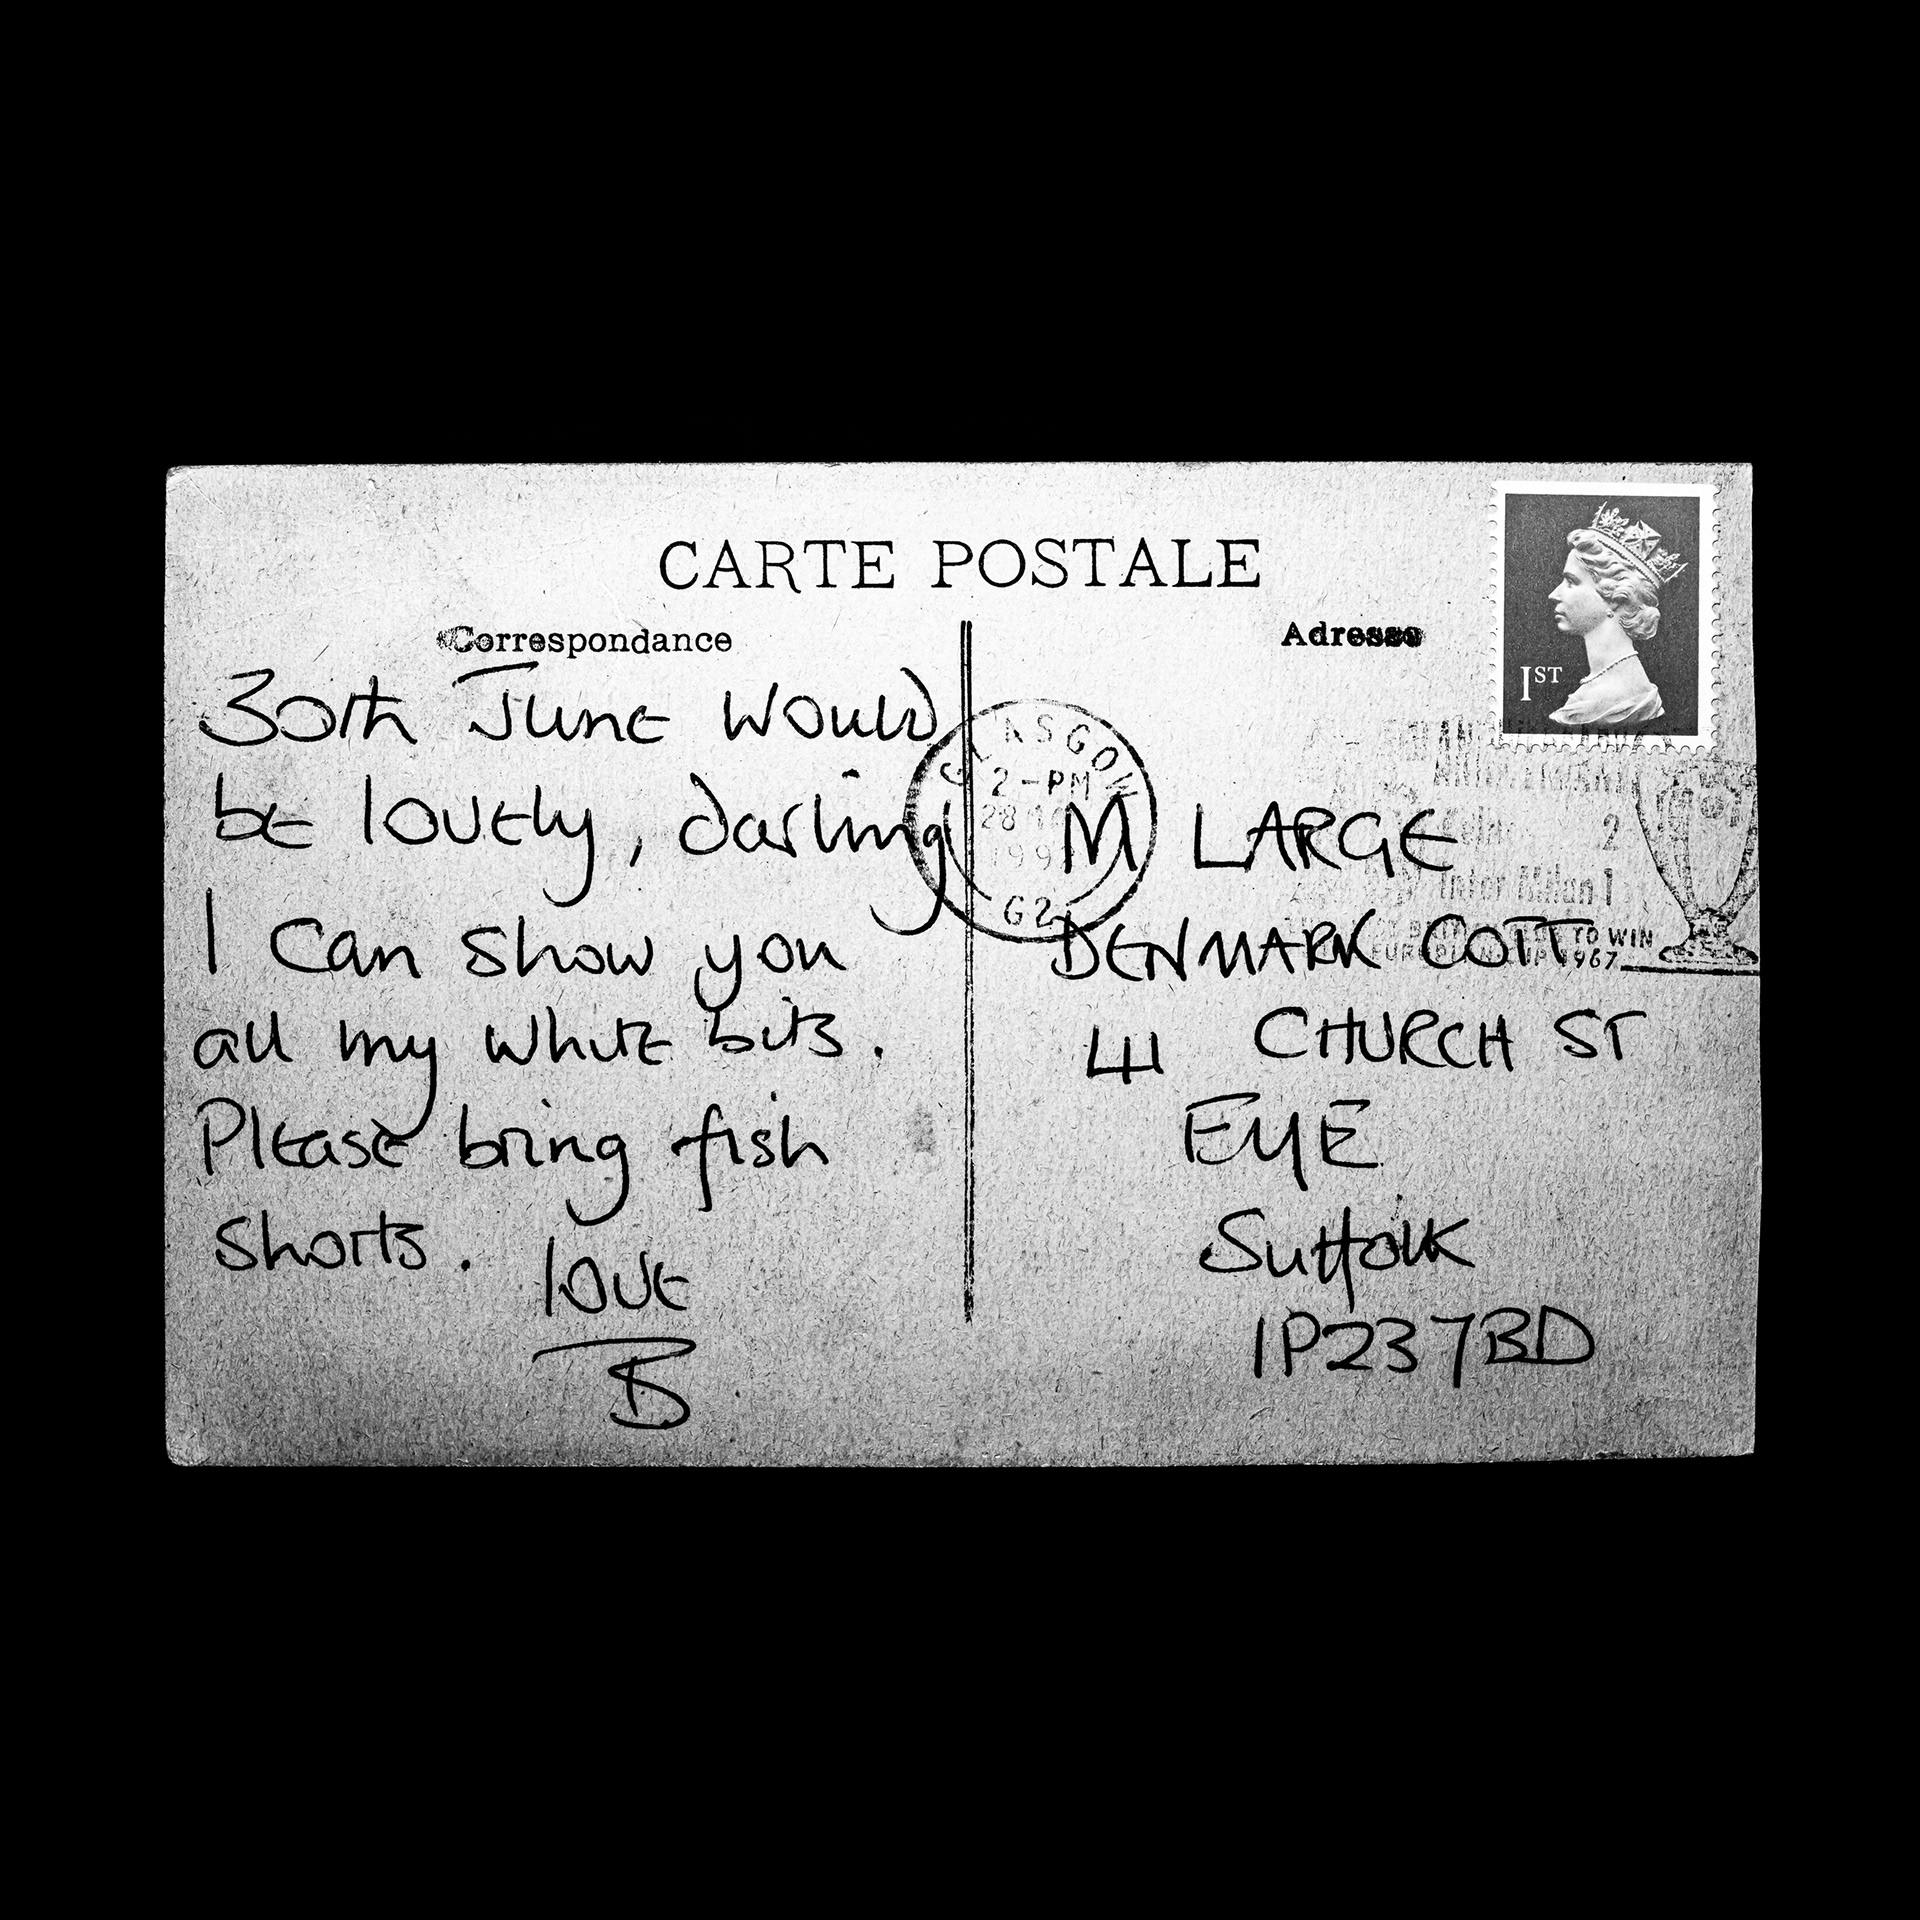 CARTE POSTALE
Correspondance
30th June would
be lovely, darling
I can show you
all my white bits.
Please bring fish
shorts.
love
B
Adresse
1ST
GLASGOW
2-PM
28
199
G2
2
Inter Milan 1
TO WIN
1967
M LARGE
DENMARK COTT
41 CHURCH ST
EYE
Suffolk
IP23 7BD